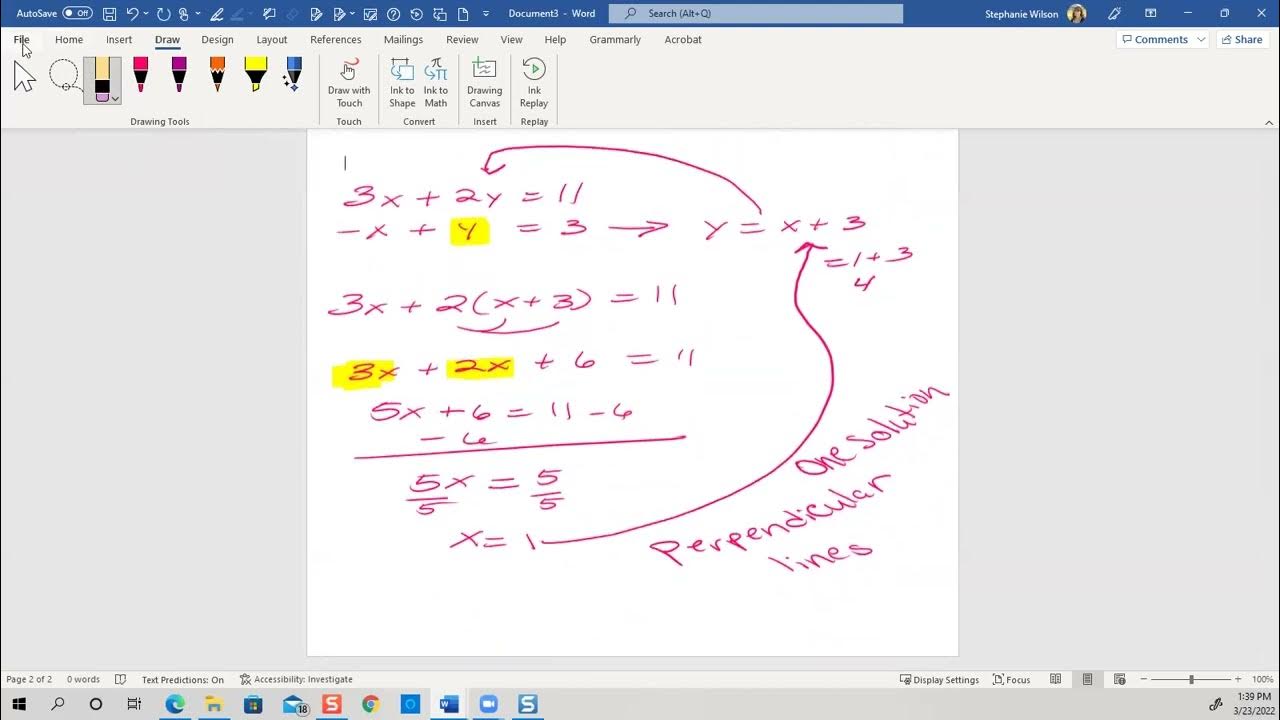 AutoSave Off Document3 - Word Search (Alt+Q) Stephanie Wilson
File Home Insert Draw Design Layout References Mailings Review View Help Grammarly Acrobat Comments Share
Draw with Touch Ink to Shape Ink to Math Drawing Canvas Ink Replay
Drawing Tools Touch Convert Insert Replay
3x + 2y = 11
-x + y = 3 → y = x + 3
= 1 + 3
4
3x + 2(x + 3) = 11
3x + 2x + 6 = 11
5x + 6 = 11 - 6
- 6
5x = 5
5 5
x = 1
One Solution
Perpendicular
lines
Page 2 of 2 0 words Text Predictions: On Accessibility: Investigate Display Settings Focus 100%
18 1:39 PM
3/23/2022